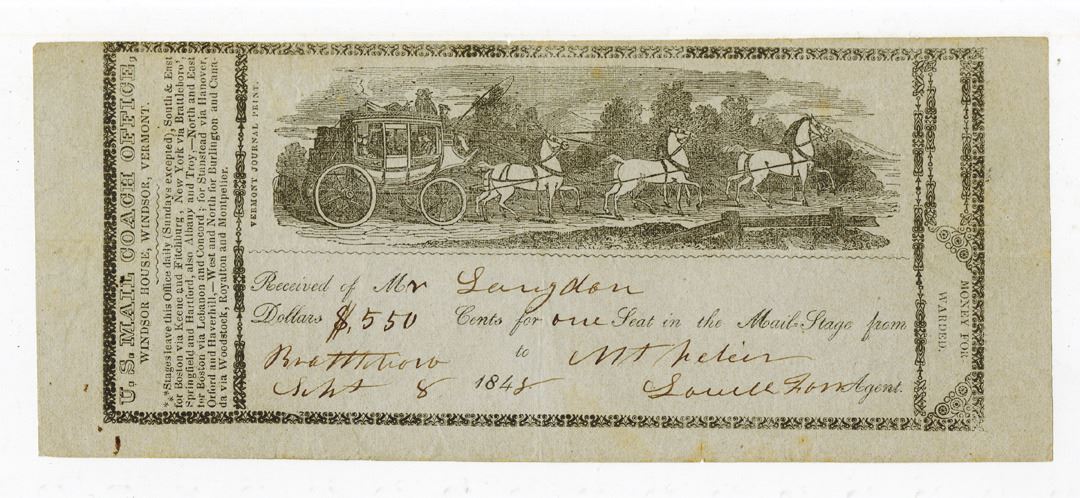 U. S. MAIL COACH OFFICE,
WINDSOR HOUSE, WINDSOR, VERMONT.
*⁎*Stages leave this Office daily (Sundays excepted), South & East
for Boston via Keene and Fitchburg, New York via Brattleboro',
Springfield and Hartford, also Albany and Troy.—North and East
for Boston via Lebanon and Concord; for Stanstead via Hanover,
Orford and Haverhill.—West and North for Burlington and Cana-
da via Woodstock, Royalton and Montpelier.
VERMONT JOURNAL PRINT.
Received of Mr Langdon
Dollars $,550 Cents for one Seat in the Mail-Stage from
Brattleboro to Mt
Sept 8 1848 Lowell Agent.
MONEY FOR
WARDED,